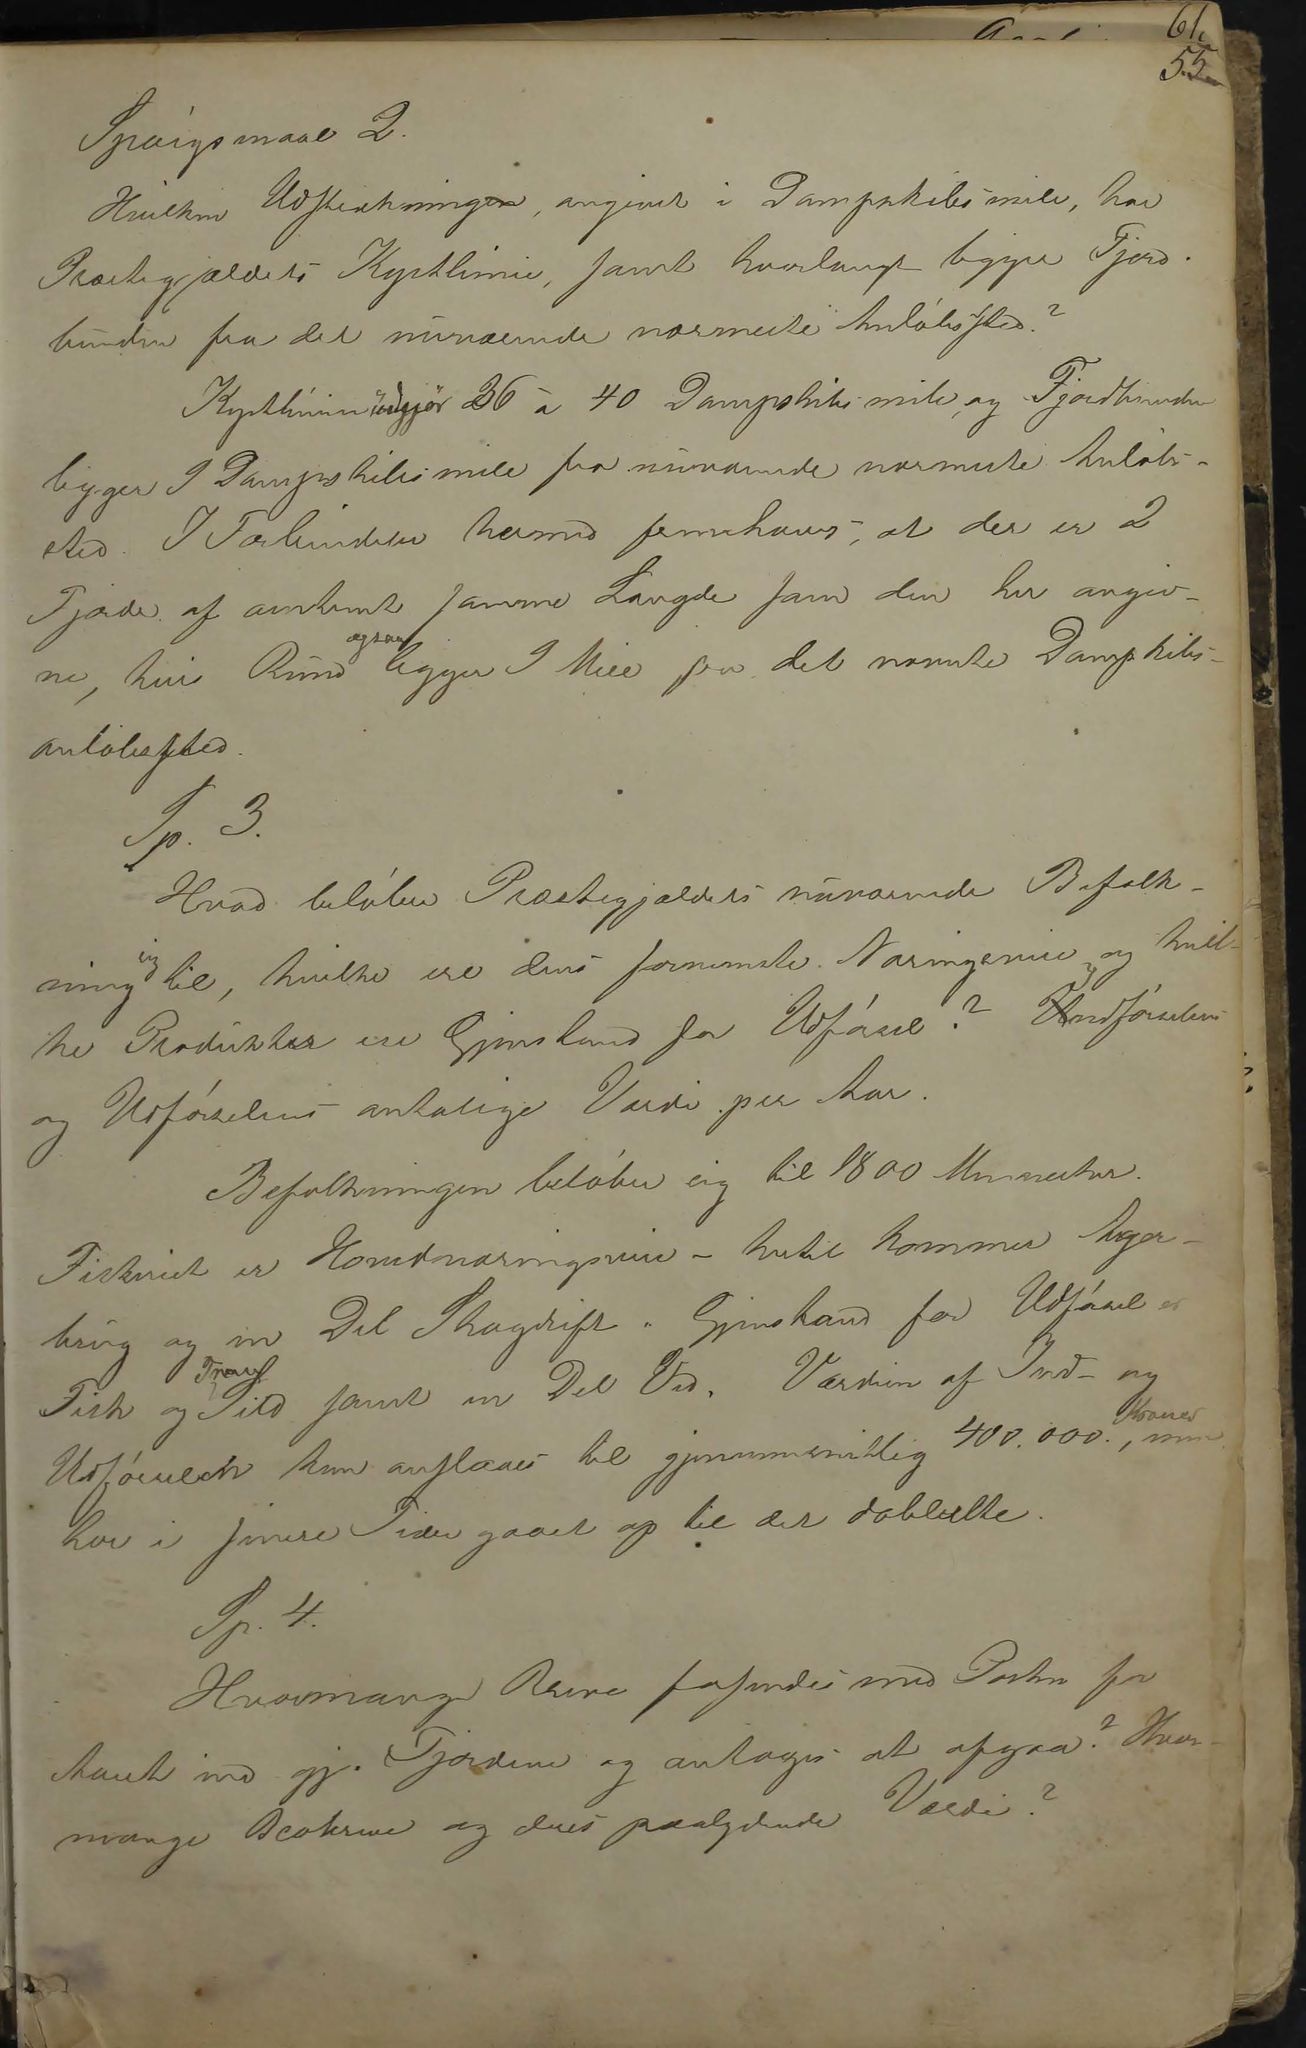 61.
55
Spörgsmaal 2.
Hvilken Udstrækningen, angivet i Dampskibsmile, har
Præstegjældets Kystlinie, samt hvorlangt ligger Fjord-
bunden fra det nuværende nærmeste Anløbssted?
Kystlinien udgjør 36 a 40 Dampskibsmile, og Fjordbunden
ligger 9 Dampskibsmile fra nuværende nærmeste Anløbs-
sted. I Forbindelse hermed fremhæves, at der er 2
Fjorde af omtrent samme Længde som den her angiv-
ne, hvis Bund ogsaa ligger 9 Mile fra det nærmeste Dampskibs-
anløbssted.
Sp. 3.
Hvad beløber Præstegjældets nuværende Befolk-
ning sig til, hvilke ere dens fornemste Næringsveie, og hvil-
ke Produkter ere Gjenstand for Udførsel? Indførselens
og Udførselens antagelige Værdi per Aar.
Befolkningen beløber sig til 1800 Mennesker.
Fiskeriet er Hovednæringsveie - hertil kommer Ager-
brug og en Del Skogdrift. Gjenstand for Udførsel er
Fisk og Sild Tran samt en Del Ved. Værdien af Ind- og
Udførselen kan anslaaes til gjennemsnitlig 400.000. Kroner, men
har i senere Tider gaaet op til det dobbelte.
Sp. 4.
Hvormange Breve forsendes med Posten for
Aaret ind gj. Fjordene og antages at afgaa? Hvor-
mange Brevene og deres paalydende Værdi?